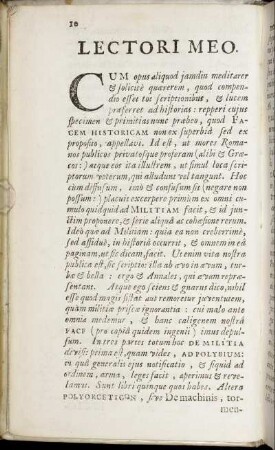 10
LECTORI MEO.
CUM opus aliquod jamdiu meditarer
& solicitè quærerem, quod compen-
dio esset tot scriptionibus, & lucem
præferret ad historias: repperi cujus
specimen & primitias nunc præbeo, quod FA-
CEM HISTORICAM non ex superbiâ sed ex
proposito, appellavi. Id est, ut mores Roma-
nos publicos privatosque proferam (alibi & Græ-
cos:) atque eos ita illustrem, ut simul loca scri-
ptorum veterum, qui alludunt vel tangunt. Hoc
cum diffusum, imò & confusum sit (negare non
possum:) placuit excerpere primùm ex omni cu-
mulo quidquid ad MILITIAM facit, & id jun-
ctim proponere, & serie aliquâ ac cohæsione rerum.
Ideò quæ ad Militiam: quia ea non crebrerimè,
sed assiduè, in historiâ occurrit, & omnem in eâ
paginam, ut sic dicam, facit. Ut enim vita nostra
publica est, sic scriptio: illa ab ævo in ævum, tur-
bæ & bella: ergo & Annales, qui ævum repræ-
sentant. Atque ego sciens & gnarus dico, nihil
esse quod magis sistat aut remoretur juventutem,
quàm militiæ priscæ ignorantia: cui malo ante
omnia medemur, & hanc caliginem nostrâ
FACE (pro captu quidem ingenii) imus depul-
sum. In tres partes totum hoc DE MILITIA
divisi: prima est, quam vides, AD POLYBIUM:
in quâ generalis ejus notificatio, & siquid ad
ordinem, arma, leges facit, aperimus & reve-
lamus. Sunt libri quinque quos habes. Altera
POLYORCETICΩN, sive De machinis, tor-
men-